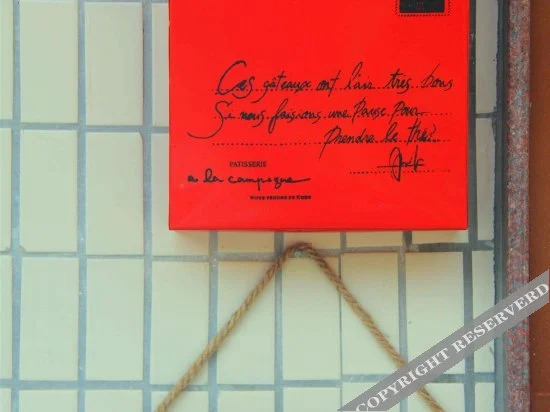 Ces gâteaux ont l'air très bons
Si nous faisions une pause pour
prendre le thé.
PATISSERIE
à la campagne
COPYRIGHT RESERVERD